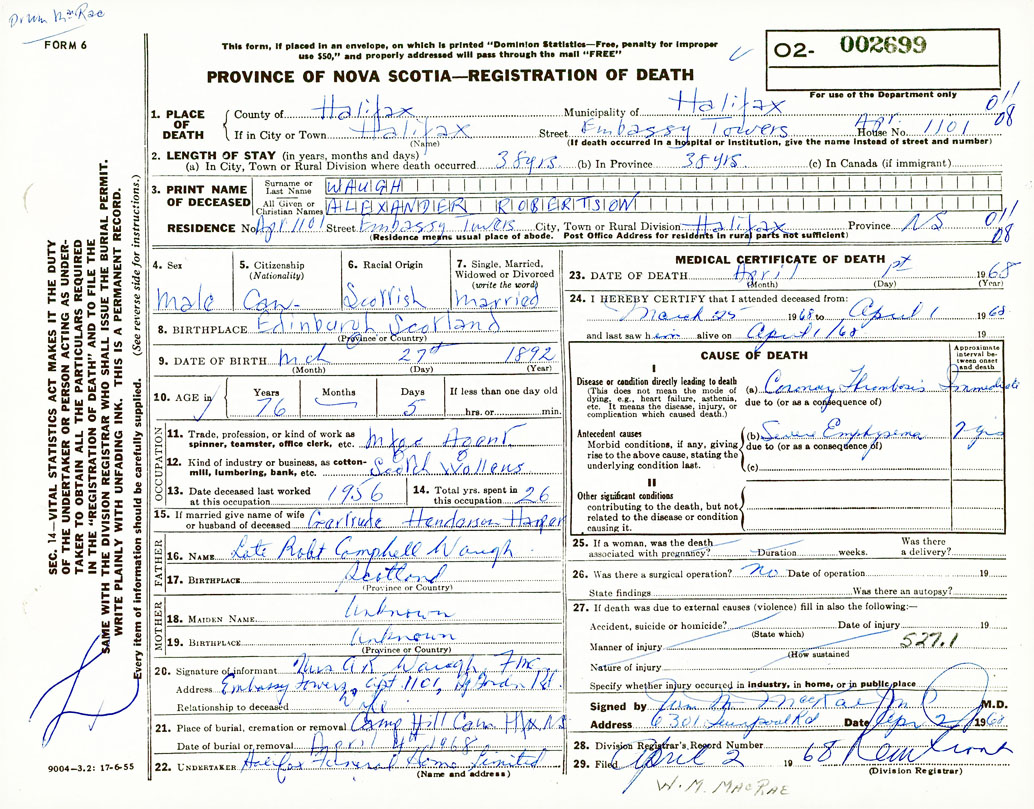 Drum MacRae
FORM 6
This form, if placed in an envelope, on which is printed "Dominion Statistics—Free, penalty for improper
use $50," and properly addressed will pass through the mail "FREE"
PROVINCE OF NOVA SCOTIA—REGISTRATION OF DEATH
O2- 002699
For use of the Department only
1. PLACE OF DEATH
County of Halifax Municipality of Halifax
011
08
If in City or Town Halifax Street Embassy Towers House No. Apt. 1101
(Name) (If death occurred in a hospital or institution, give the name instead of street and number)
2. LENGTH OF STAY (in years, months and days)
(a) In City, Town or Rural Division where death occurred 38 yrs (b) In Province 38 yrs (c) In Canada (if immigrant)
3. PRINT NAME OF DECEASED
Surname or Last Name WAUGH
All Given or Christian Names ALEXANDER ROBERTSON
RESIDENCE No. Apt 1101 Street Embassy Towers City, Town or Rural Division Halifax Province NS
011
08
(Residence means usual place of abode. Post Office Address for residents in rural parts not sufficient)
4. Sex Male
5. Citizenship (Nationality) Can-
6. Racial Origin Scottish
7. Single, Married, Widowed or Divorced (write the word) Married
8. BIRTHPLACE Edinburgh Scotland
(Province or Country)
9. DATE OF BIRTH Mch 27th 1892
(Month) (Day) (Year)
10. AGE in Years 76 Months Days 5 If less than one day old
hrs. or min.
OCCUPATION
11. Trade, profession, or kind of work as
spinner, teamster, office clerk, etc. Mfge Agent
12. Kind of industry or business, as cotton-
mill, lumbering, bank, etc. Scotch Wollens
13. Date deceased last worked
at this occupation 1956
14. Total yrs. spent in
this occupation 26
15. If married give name of wife
or husband of deceased Gertrude Henderson Harper
FATHER
16. NAME Late Robt Campbell Waugh
17. BIRTHPLACE Scotland
(Province or Country)
MOTHER
18. MAIDEN NAME Unknown
19. BIRTHPLACE Unknown
(Province or Country)
20. Signature of informant Mrs A R Waugh
Address Embassy Towers, Apt 1101,
Relationship to deceased Wife
21. Place of burial, cremation or removal Camp Hill Cem Hfx NS
Date of burial or removal April 4th 1968
22. UNDERTAKER Halifax Funeral Home Limited
(Name and address)
MEDICAL CERTIFICATE OF DEATH
23. DATE OF DEATH April 1st 1968
(Month) (Day) (Year)
24. I HEREBY CERTIFY that I attended deceased from:
March 25 1968 to April 1 1968
and last saw him alive on April 1/68 19
CAUSE OF DEATH
Approximate interval between onset and death
I
Disease or condition directly leading to death
(This does not mean the mode of
dying, e.g., heart failure, asthenia,
etc. It means the disease, injury, or
complication which caused death.)
(a) Coronary Thrombosis Immediate
due to (or as a consequence of)
Antecedent causes
Morbid conditions, if any, giving
rise to the above cause, stating the
underlying condition last.
(b) Severe Emphysema 7 yrs
due to (or as a consequence of)
(c)
II
Other significant conditions
contributing to the death, but not
related to the disease or condition
causing it.
25. If a woman, was the death
associated with pregnancy? Duration weeks. Was there
a delivery?
26. Was there a surgical operation? No Date of operation 19
State findings Was there an autopsy?
27. If death was due to external causes (violence) fill in also the following:—
Accident, suicide or homicide? Date of injury 19
(State which)
Manner of injury 527.1
(How sustained
Nature of injury
Specify whether injury occurred in industry, in home, or in public place
Signed by MacRae M.D.
Address 6301 Liverpool Rd Date Apr 2 1968
28. Division Registrar's Record Number
29. Filed April 2 1968
(Division Registrar)
W. M. MACRAE
SEC. 14—VITAL STATISTICS ACT MAKES IT THE DUTY
OF THE UNDERTAKER OR PERSON ACTING AS UNDER-
TAKER TO OBTAIN ALL THE PARTICULARS REQUIRED
IN THE "REGISTRATION OF DEATH" AND TO FILE THE
SAME WITH THE DIVISION REGISTRAR WHO SHALL ISSUE THE BURIAL PERMIT.
WRITE PLAINLY WITH UNFADING INK. THIS IS A PERMANENT RECORD.
Every item of information should be carefully supplied. (See reverse side for instructions.)
9004-3.2: 17-6-55